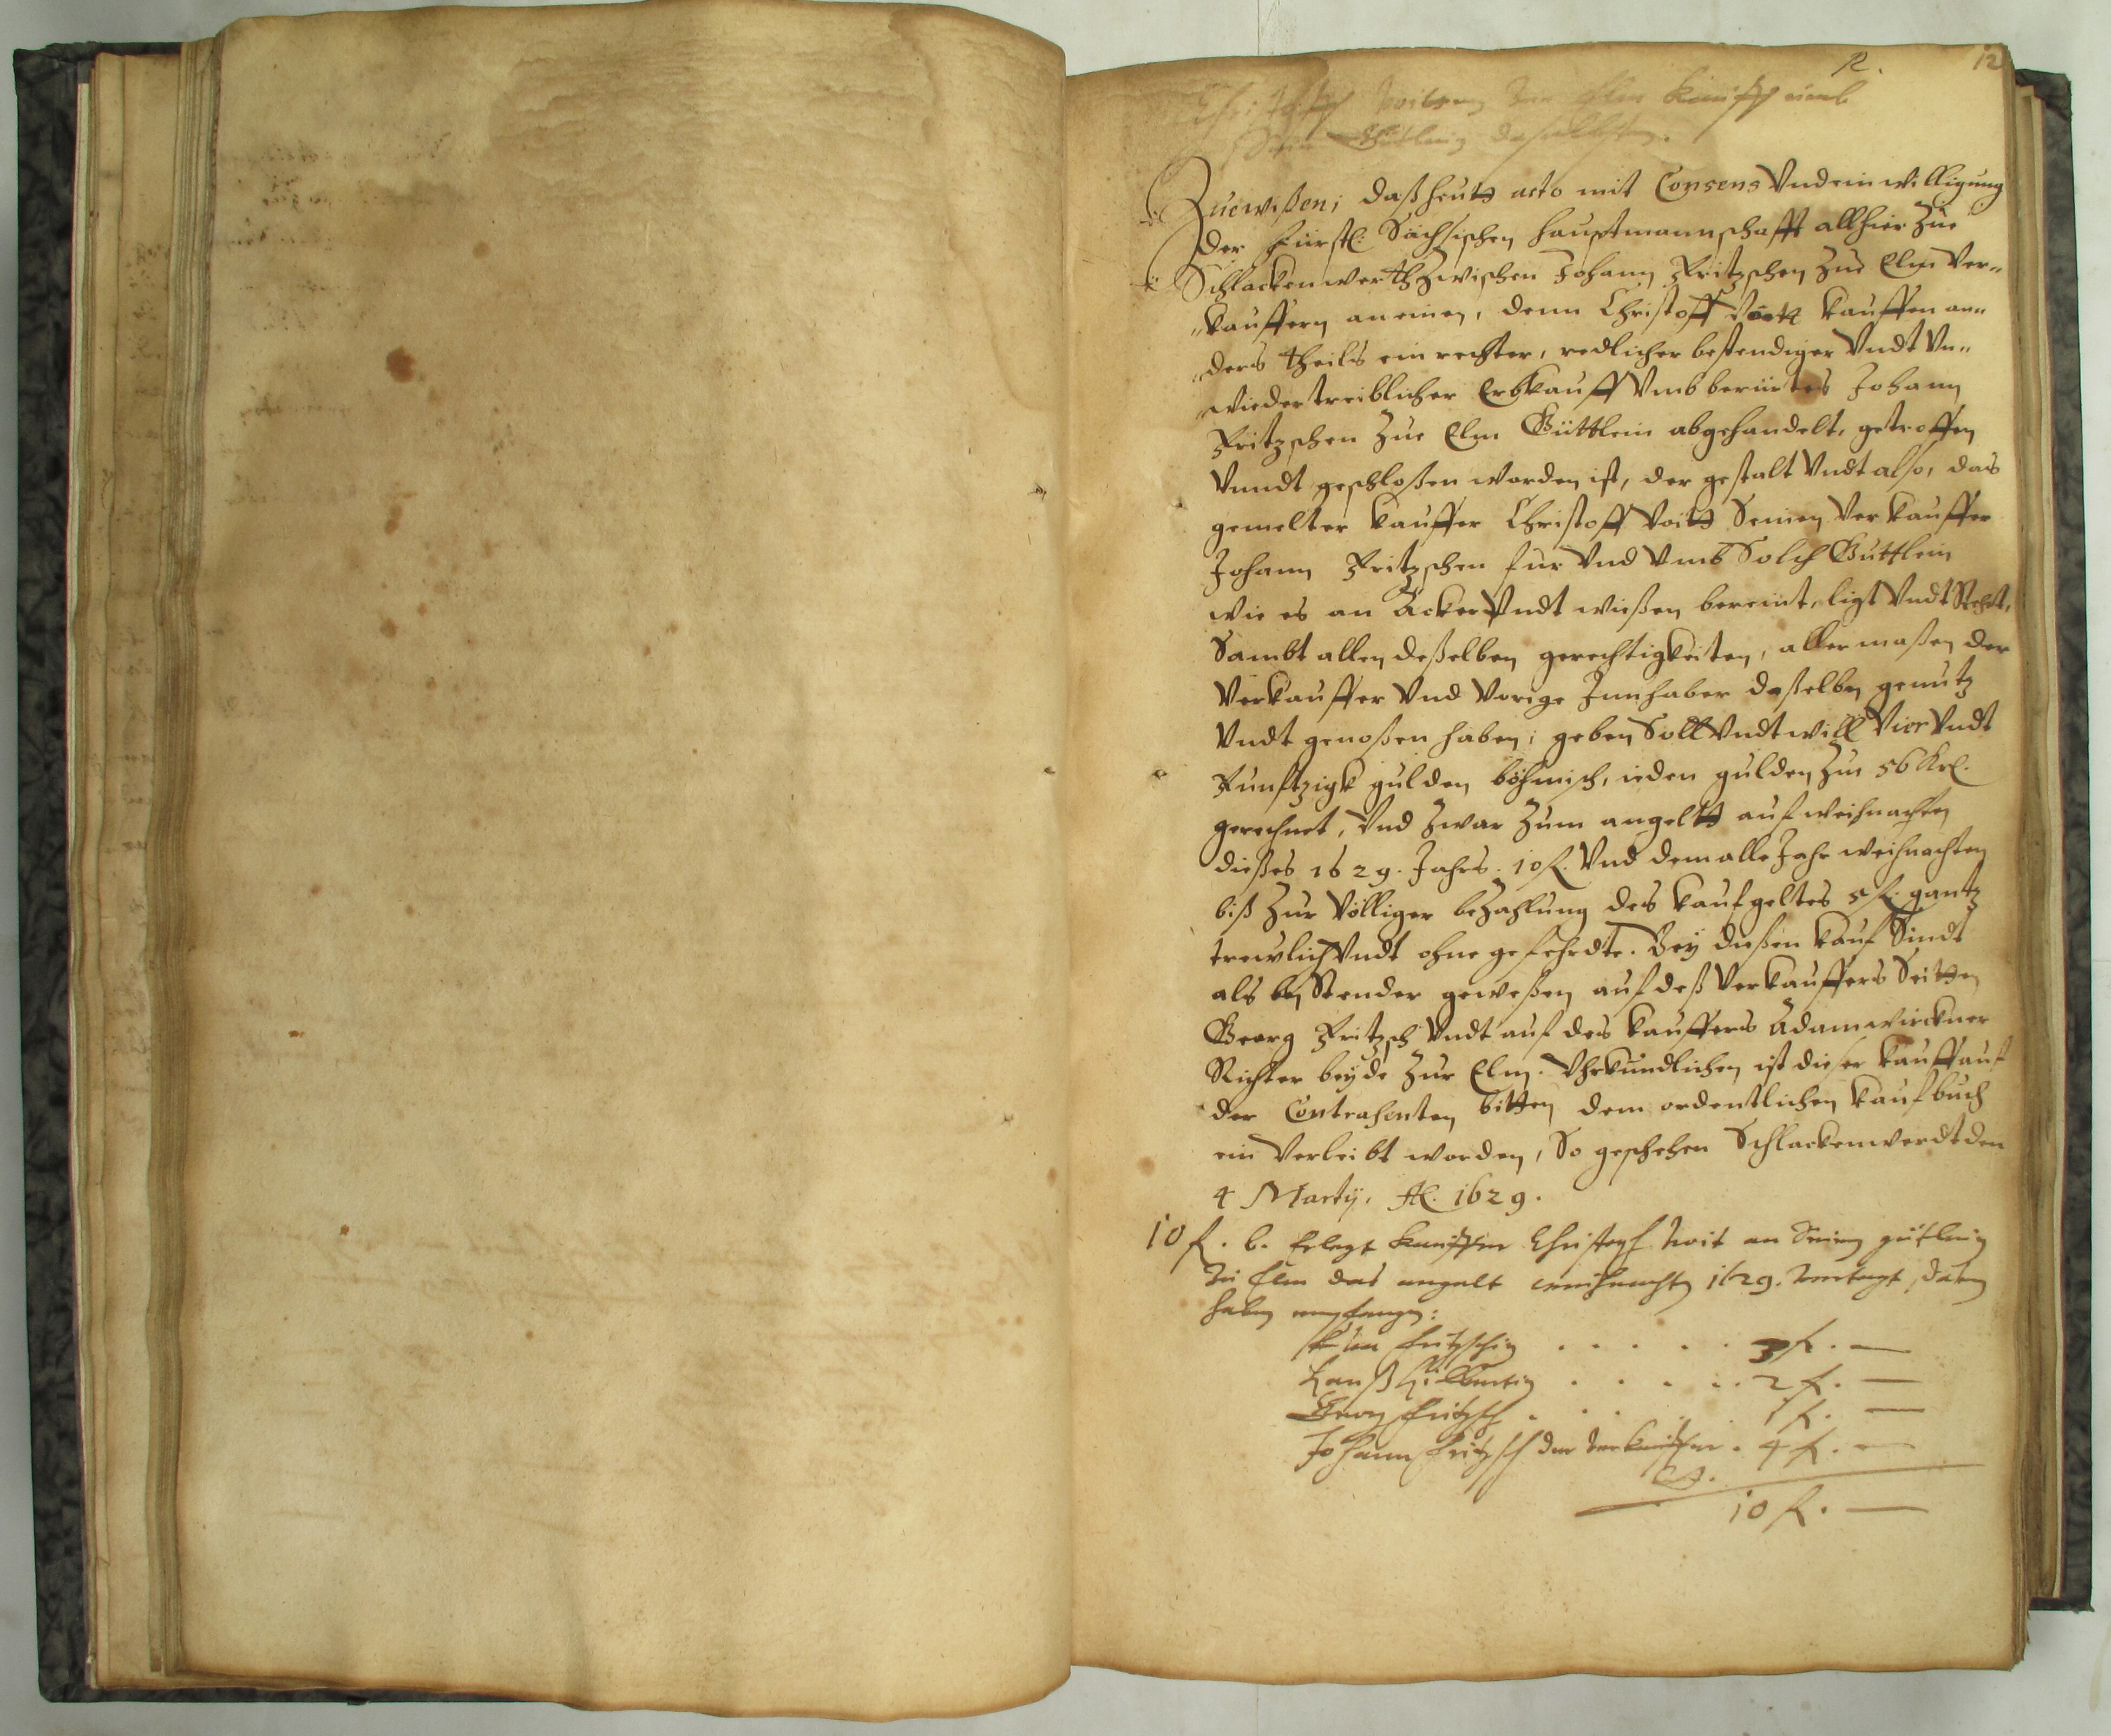 12.
12
Christoff Voiten der Elm kauff umb
Sein Gütlein daselbsten.
Zuewißen, daß heut acto mit Consens Vnd einwilligung
der Fürstl: Sächsischen Hauptmannschafft allhier Zue
Schlackenwerth Zwischen Johann Fritzschen Zue Elm Ver„
„kauffern an einen, denn Christoff Voitt kauffern an„
„ders theils ein rechter, redlicher bestendiger Vndt Vn„
„wiedertreiblicher Erbkauff Vmb berürtes Johann
Fritzschen Zue Elm Güttlein abgehandelt, getroffen
Vnndt geschloßen worden ist, der gestalt Vndt also, das
gemelter kauffer Christoff Voitt Seinen Verkauffer
Johann Fritzschen für Vnd Vmb Solch Guttlein
wie es an Äcker Vndt wießen bereint, ligt Vndt Stehet,
Sambt allen deßelben gerechtigkeiten, aller maßen der
Verkauffer Vnd Vorige Innhaber daßelbe genutz
Vndt genoßen haben; geben Soll Vndt will Vier Vndt
Funftzigk gulden böhmisch, ieden gulden Zue 56 Krl.
gerechnet, Vnd Zwar Zum angelt auf weihnachten
dießes 1629. Jahrs. 10 fl. Vnd dem alle Jahr weihnachten
biß Zur Völliger beZahlung des kaufgeltes 5 fl. gantz
trewlich Vndt ohne gefehrdte. Bey dießen kauf Sindt
als bey Stender geweßen auf deß Verkauffers Seitten
Georg Fritzsch Vndt auf des kauffers Adam wirckner
Richter beyde Zur Elm. Vhrkundlichen ist dieser kauff auf
der Contrahenten bitten dem ordentlichen kaufbuch
ein Verleibt worden, So geschehen Schlackenwerdt den
4 Martÿ, A. 1629.
10 fl. b. Erlegt kauffer Christoph Voit an Seine gütlein
Zu Elm das angelt weihnachten 1629. Vertagt, daran
haben empfangen:
Fritzschin . . . . . 3 fl. —
Hanß . . . . 2 fl. —
Georg Fritzsch . . . 1 fl. —
Johann Fritzsch der Verkauffer . 4 fl. —
10 fl. —